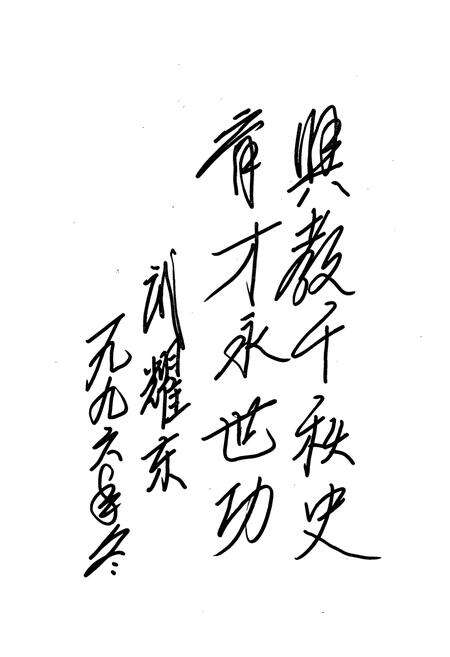 興教千秋史
育才永世功
武耀东
一九九六年冬